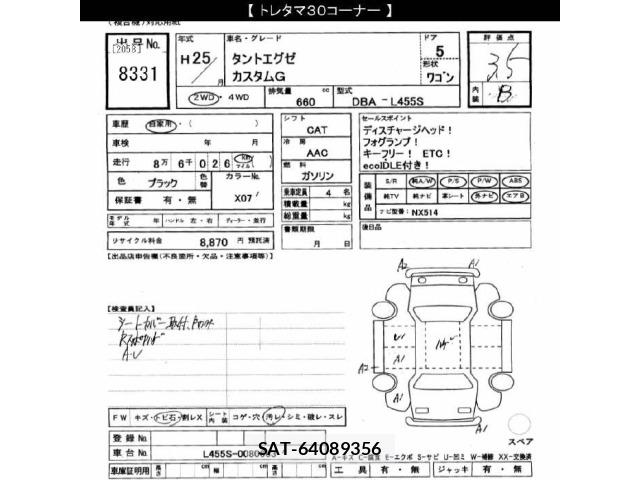 【 トレタマ30コーナー 】
(複合機)対応用紙
出品No. 年式 車名・グレード ドア 評価点
[2058] H25/月 タントエグゼ 5 3.5
8331 カスタムG 形状 ワゴン
2WD・4WD 排気量 660 cc 型式 DBA－L455S 内装 B
車歴 自家用・( )
車検 年 月
走行 8万 6千 0 2 6 Km マイル
色 ブラック 色替 カラーNo. X07
保証書 有・無
モデル年式 年 ハンドル 左・右 ディーラー・並行
リサイクル料金 8,870 円 預託済
シフト CAT
冷房 AAC
燃料 ガソリン
乗車定員 4 名
積載量 kg
総重量 kg
書類期限
月 日
セールスポイント
ディスチャージヘッド！
フォグランプ！
キーフリー！ ETC！
ecoIDLE付き！
装備品 S/R 純A/W P/S P/W ABS
純TV 純ナビ 革シート 外ナビ エアB
ナビ型番：NX514
後日品
【出品店申告欄(不良箇所・欠品・注意事項等)】
【検査員記入】
シートカバー取付
A・U
A2 A1
U A1
A2
A1 A1
スペア
FW キズ・トビ石・割レX シート内装 コゲ・穴 汚レ・シミ・破レ・スレ
登録No.
車台No. L455S-0080695
SAT-64089356
A-キズ E-エクボ S-サビ U-凹ミ W-補修 XX-交換済
車庫証明用 長さ cm 幅 cm 高さ cm 工具 有・無 ジャッキ 有・無